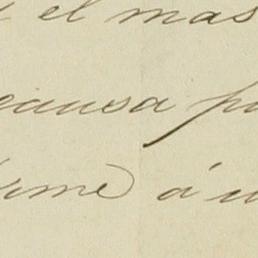 el mas
causa p
rme á u